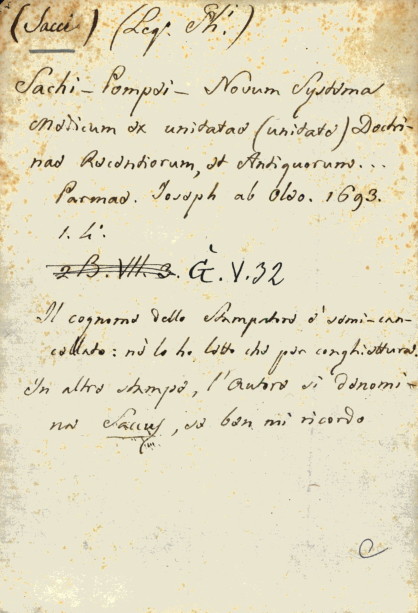 (Sacci) (Leg. Th.)
Sachi - Pompei - Novum Systema
Medicum ex unitatae (unitate) Doctri-
nae Recentiorum, et Antiquorum...
Parmae. Joseph ab Oleo. 1693.
1. 4.
2 B. VII. 3. G. V. 32
Il cognome dello Stampatore è semi-can-
cellato: nè lo ho letto che per conghiettura.
In altre stampe, l'Autore si denomi-
na Saccus, se ben mi ricordo